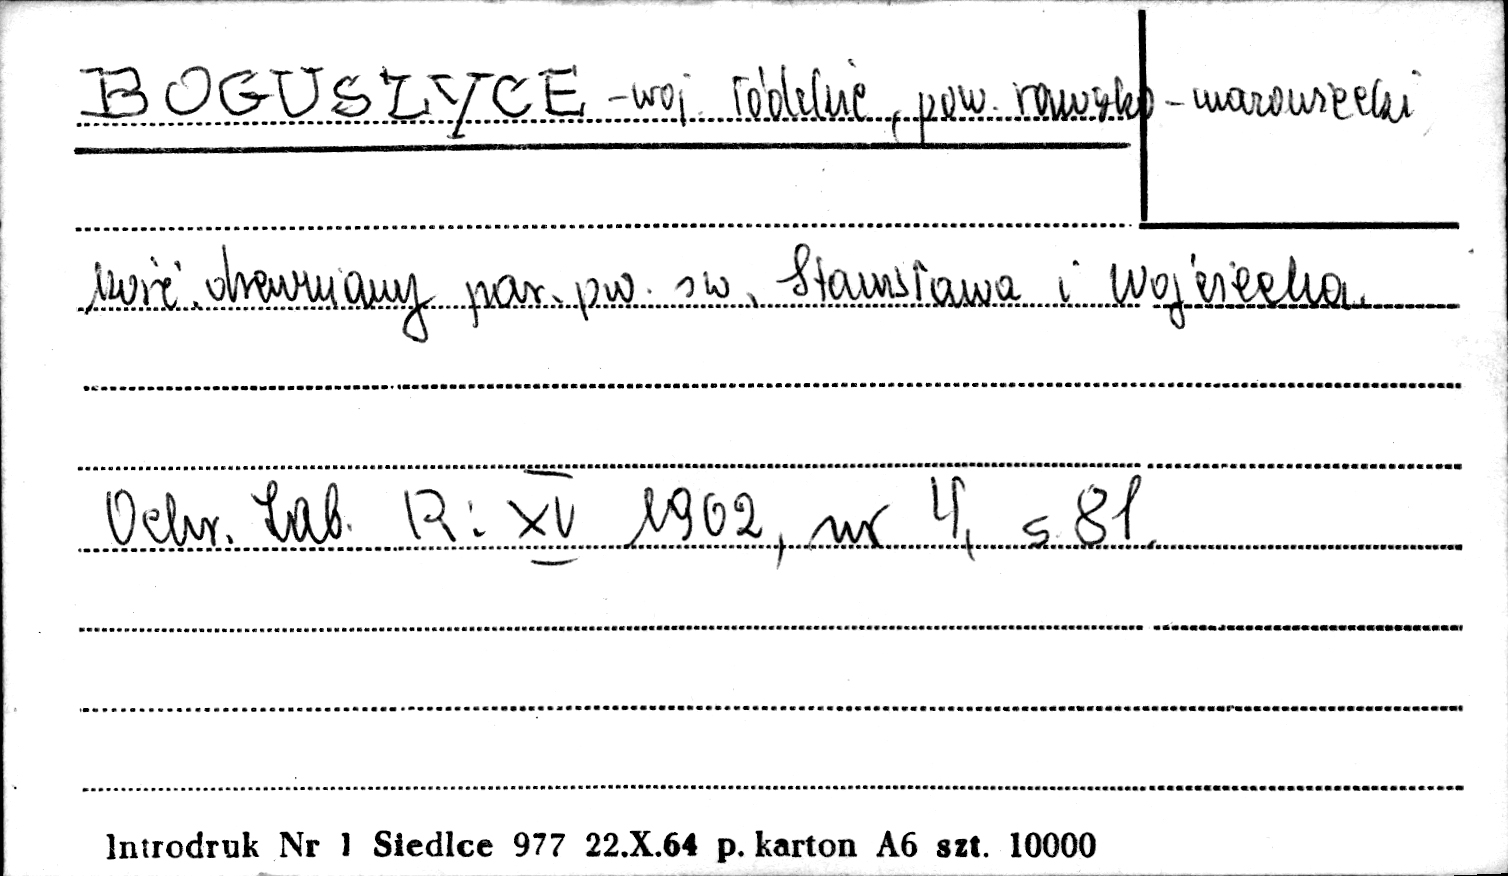 BOGUSZYCE - woj. łódzkie, pow. rawsko - mazowiecki
kość. drewniany par. pw. św. Stanisława i Wojciecha.
Ochr. Zab. R: XV 1962, nr 4, s 81.
Introdruk Nr 1 Siedlce 977 22.X.64 p. karton A6 szt. 10000